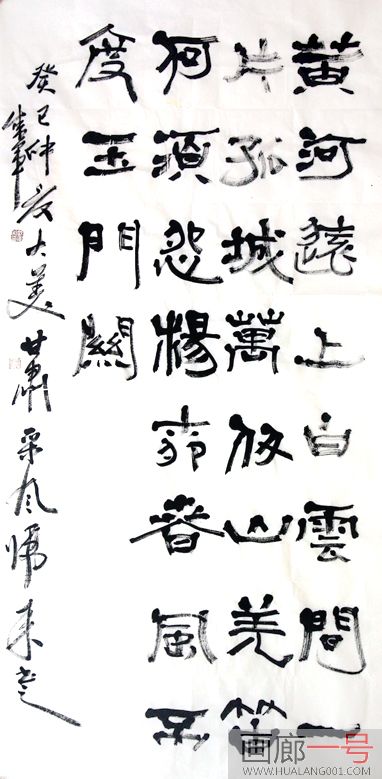 黄河遠上白雲間一
片孤城萬仞山羌笛
何須怨楊柳春風不
度玉門關
癸巳仲夏大美甘肅采風歸來
画廊一号
WWW.HUALANG001.COM